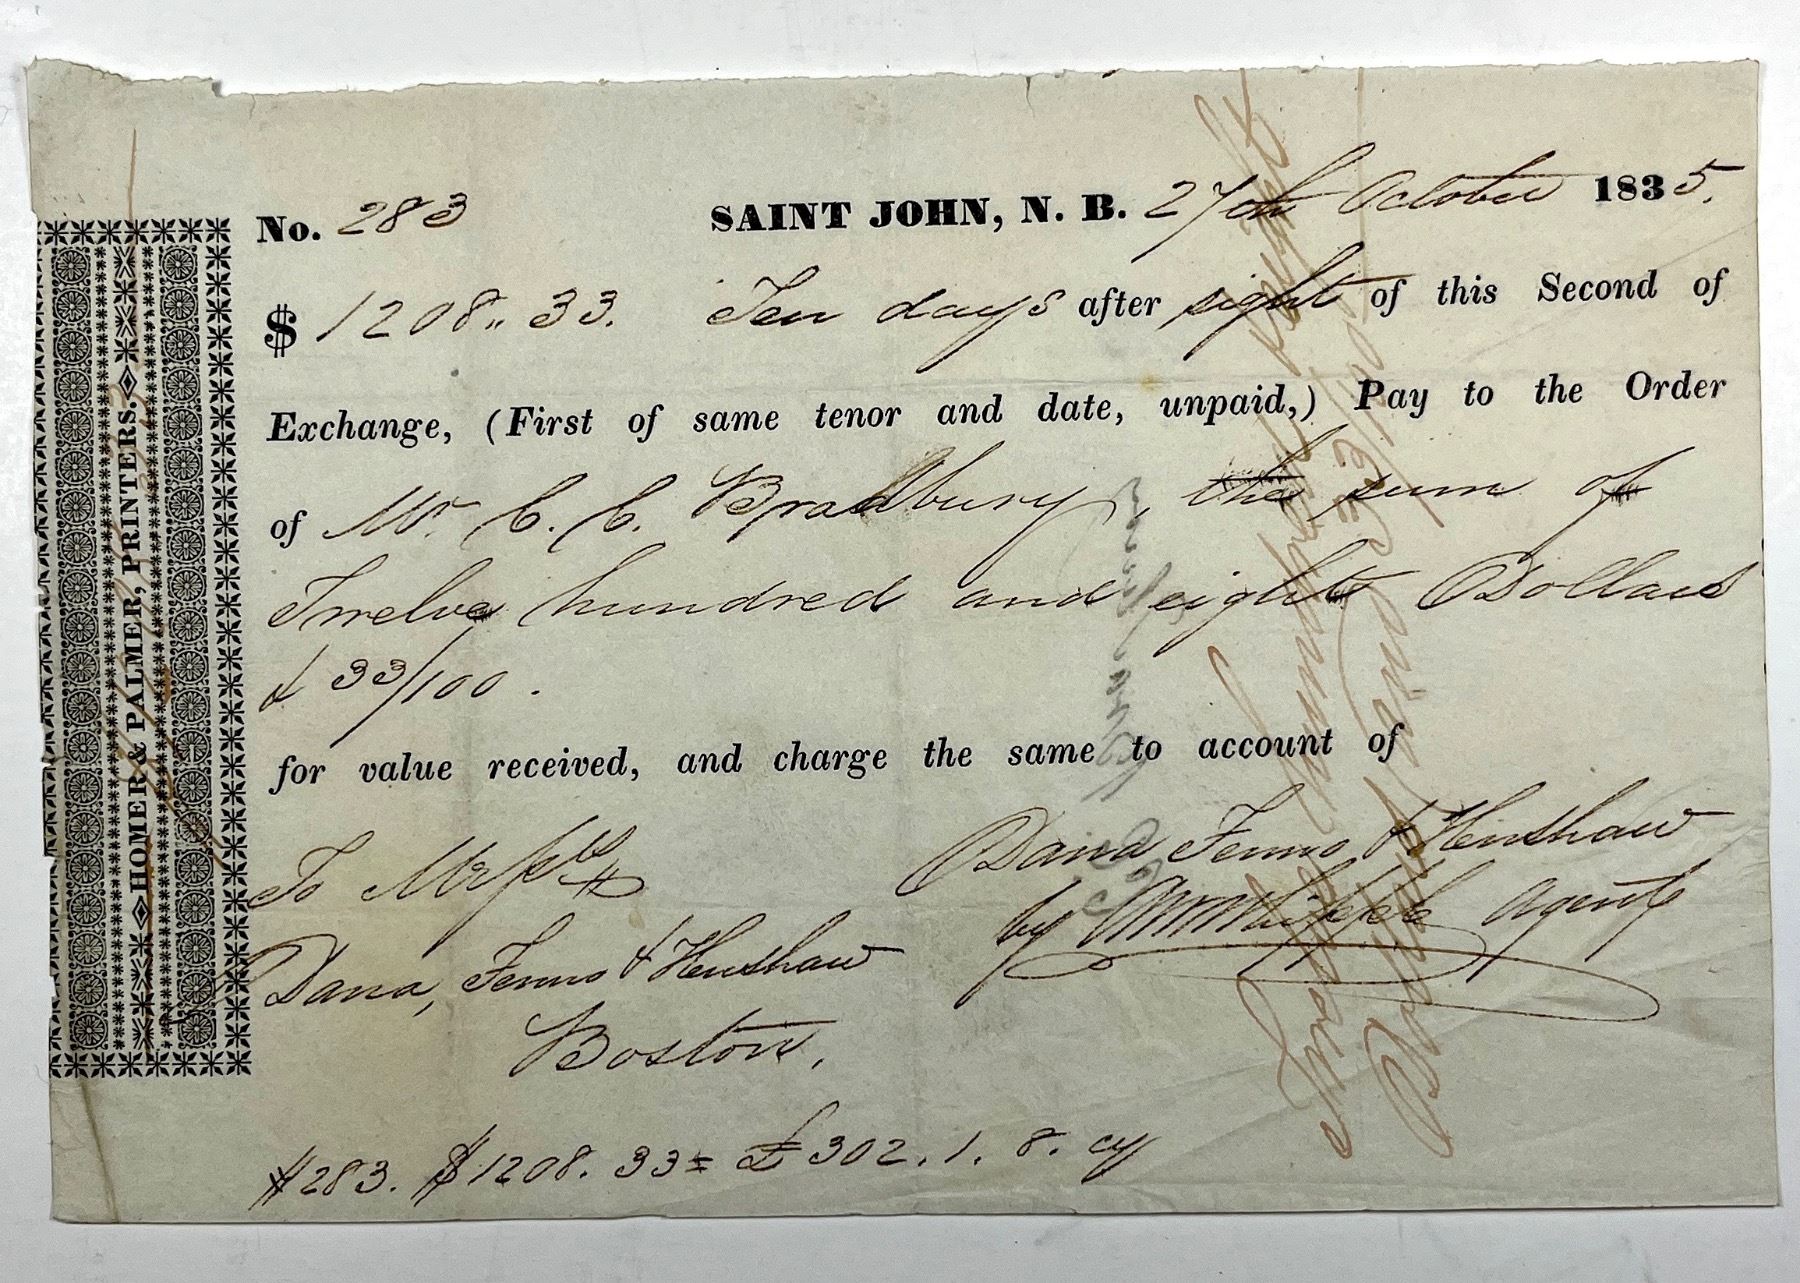 No. 283 SAINT JOHN, N. B. 27th October 1835.
$ 1208.. 33. Ten days after sight of this Second of
Exchange, (First of same tenor and date, unpaid,) Pay to the Order
of Mr. C. C. Bradbury, the sum of
Twelve hundred and eight Dollars
& 33/100.
for value received, and charge the same to account of
To Messrs Dana Fenno & Henshaw
by Whipple Agent
Dana, Fenno & Henshaw
Boston.
#283. $1208. 33 = £302. 1. 8. cy
HOMER & PALMER, PRINTERS.
Twelve hundred
Dollars